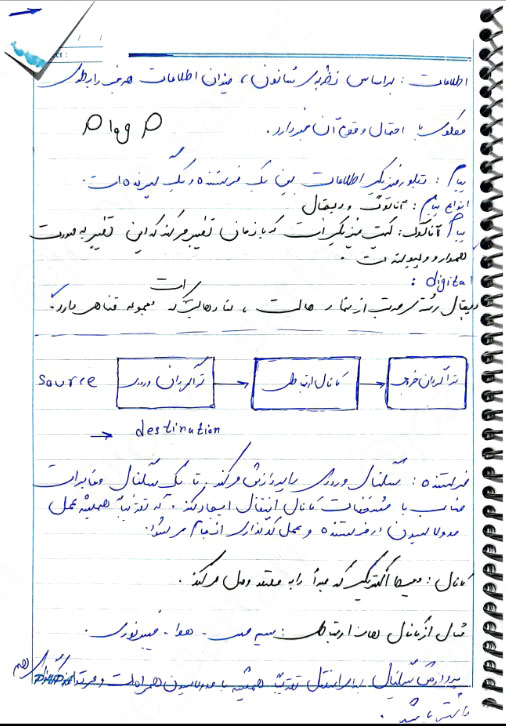 اطلاعات : براساس نظریه‌ی شانون ، میزان اطلاعات هر خبر رابطه‌ی
معکوس با احتمال وقوع آن خبر دارد.
P log P
پیام : تبلور فیزیکی اطلاعات بین یک فرستنده و یک گیرنده است.
انواع پیام : آنالوگ و دیجیتال
پیام آنالوگ : کمیت فیزیکی است که با زمان تغییر میکند که این تغییر به صورت
هموار و پیوسته است .
digital :
دیجیتال رشته‌ی مرتب از نمادها است ، نمادهایی که مجموعه متناهی دارد.
source
ترانسدیوسر ورودی
کانال ارتباطی
خروجی
→ destination
فرستنده : سیگنال ورودی را پردازش میکند تا یک سیگنال مخابرات
مناسب با مشخصات کانال انتقال ایجاد کند . که تقریباً همیشه عمل
مدولاسیون در فرستنده و عمل کدگذاری انجام می‌شود.
کانال : الکتریکی که مبدأ را به مقصد وصل میکند .
مثال از کانال های ارتباطی : سیم مسی - هوا - فیبر نوری .
پردازش سیگنال برای انتقال تقریباً همیشه با مدولاسیون همراه است و
داشته باشد .